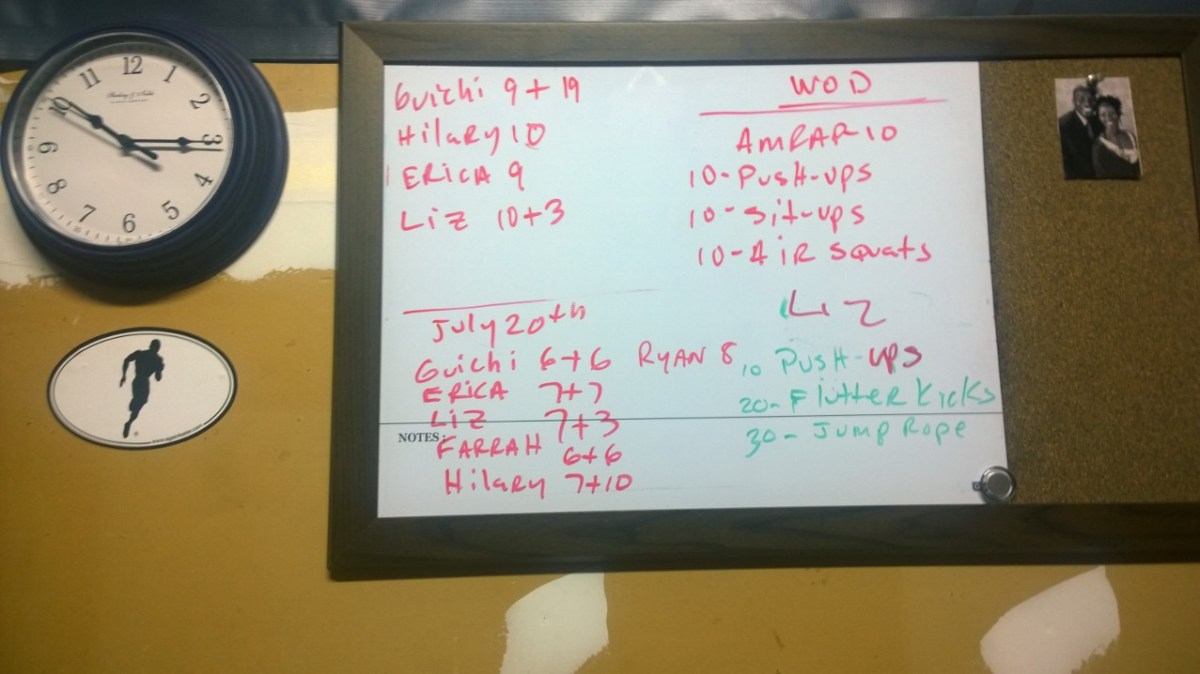 12
1
2
3
4
5
6
7
8
9
10
11
Guichi 9+19
Hilary 10
ERICA 9
Liz 10+3
WOD
AMRAP 10
10-PUSH-UPS
10-Sit-ups
10-AiR Squats
July 20th
Guichi 6+6 RYAN 8
ERICA 7+7
LiZ 7+3
FARRAH 6+6
Hilary 7+10
LIZ
10 PUSH-UPS
20-Flutter Kicks
30-Jump Rope
NOTES: